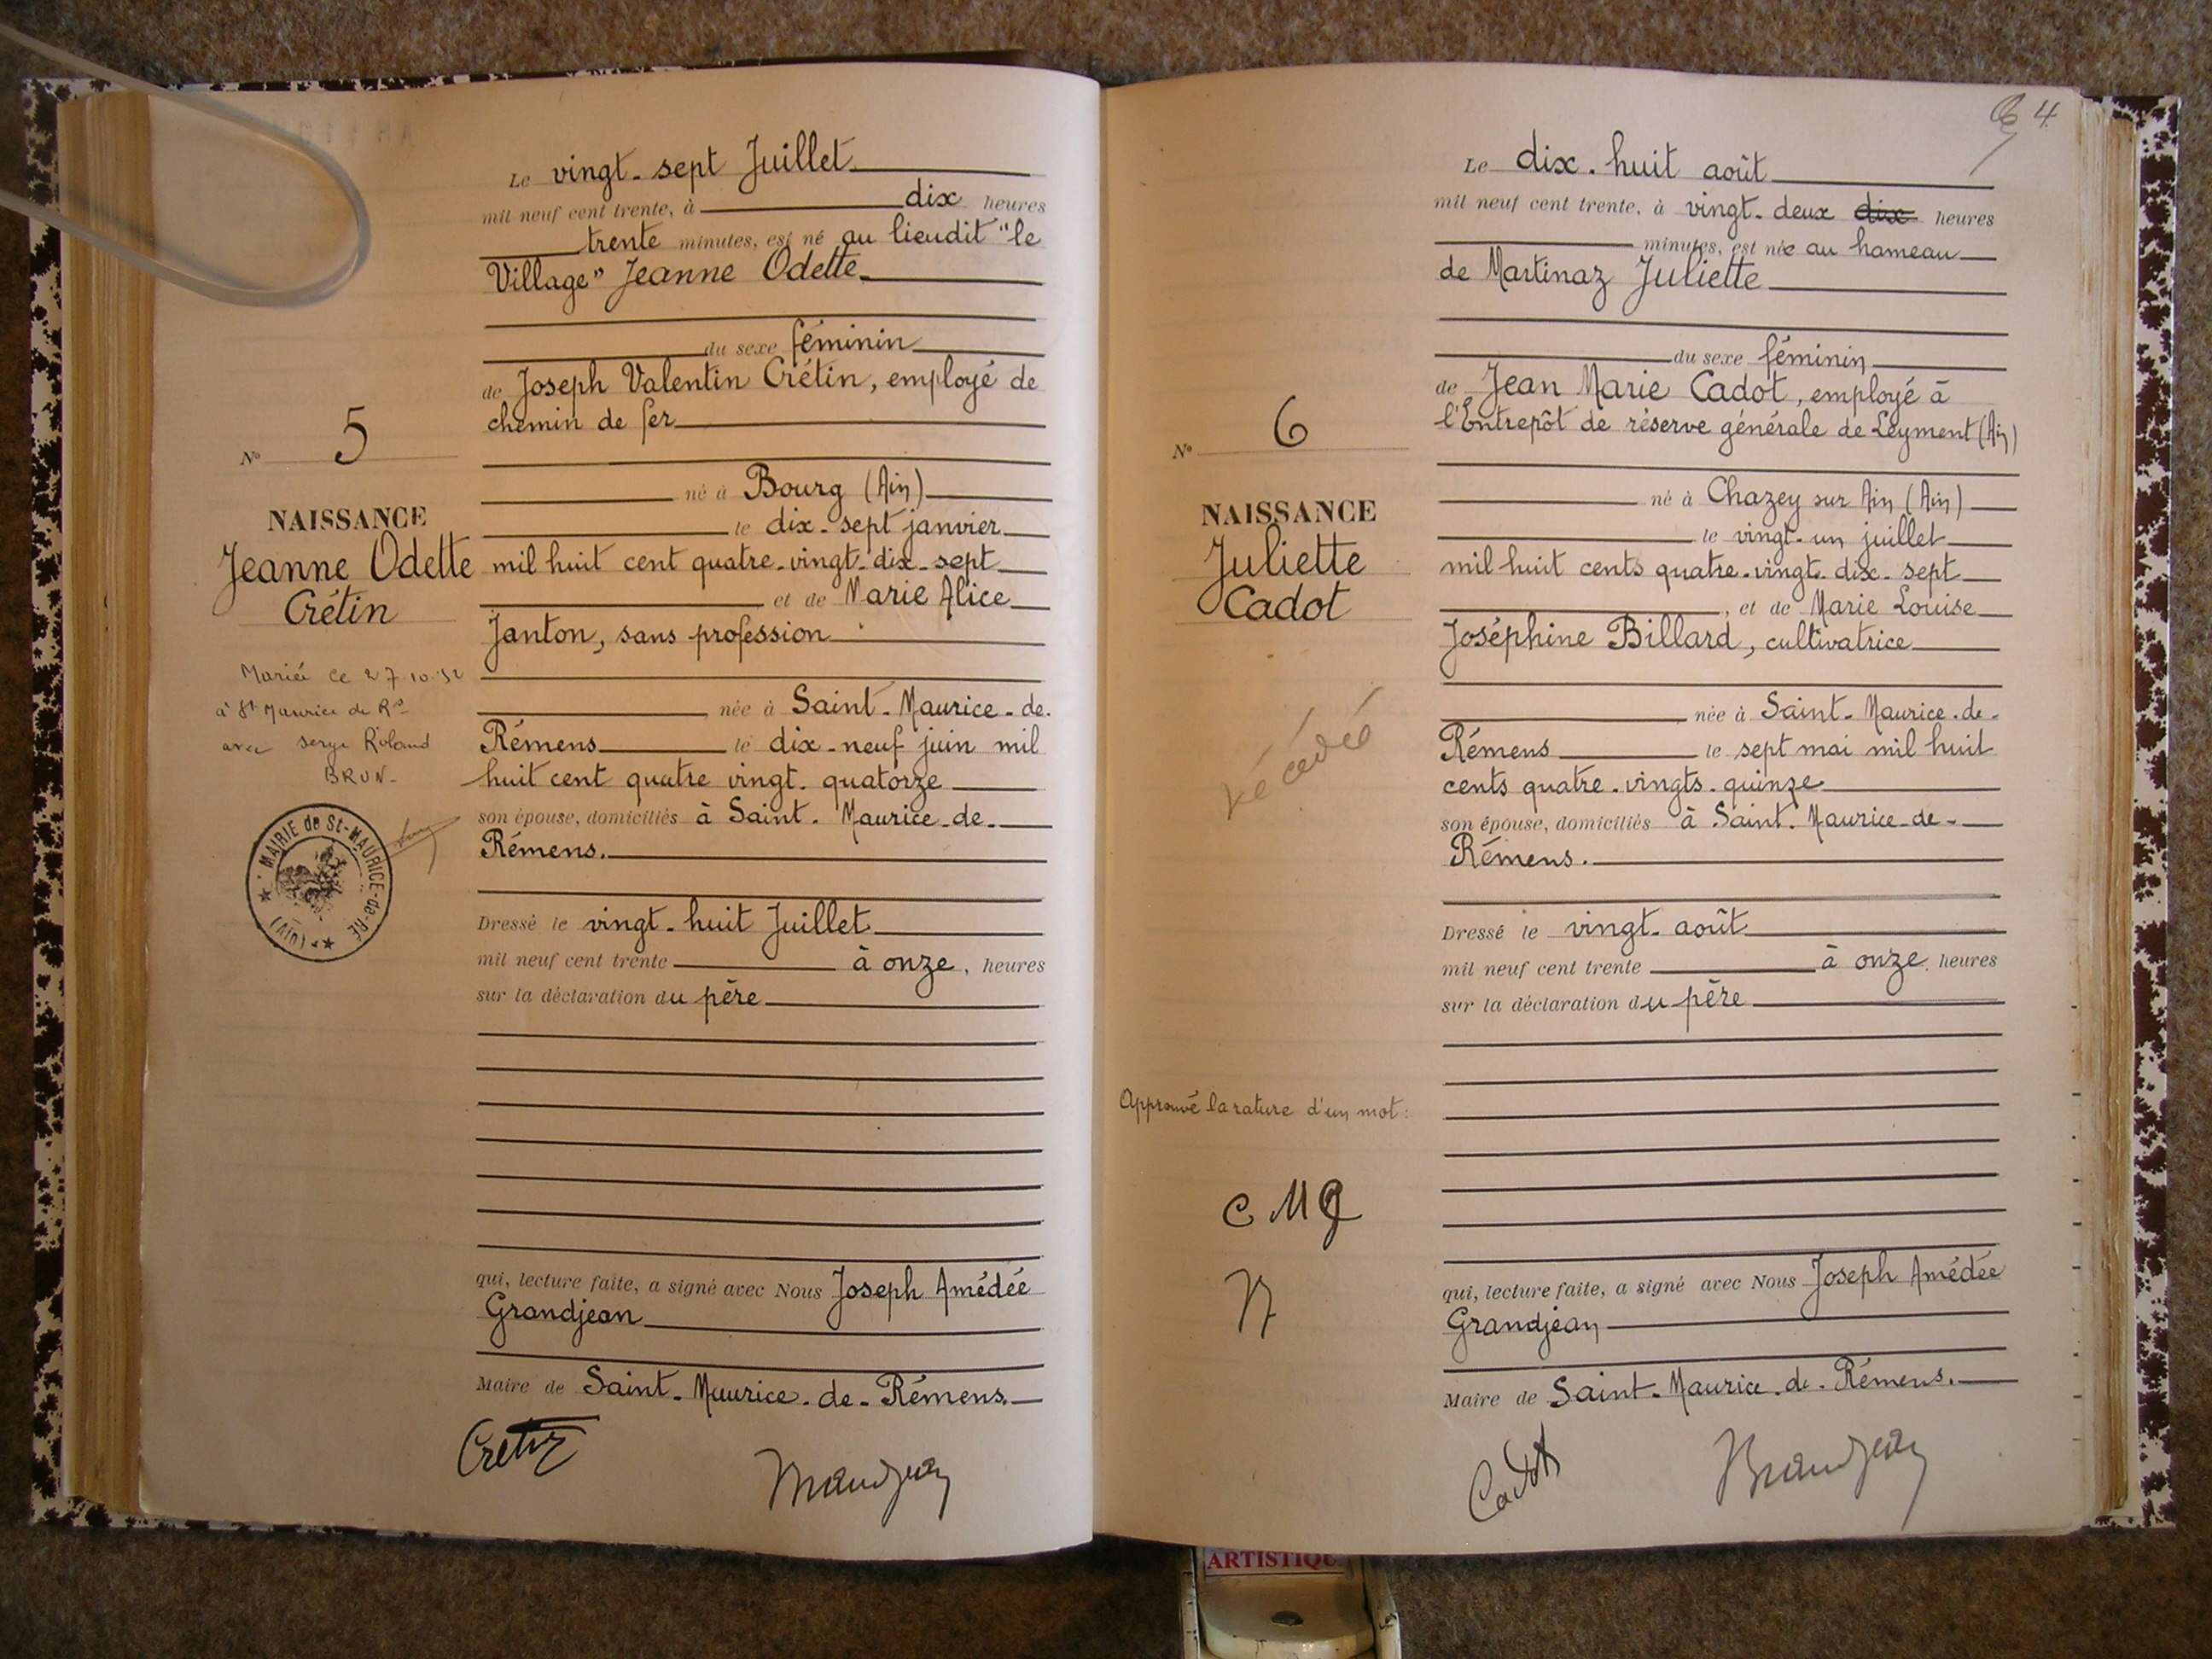 Le vingt-sept Juillet
mil neuf cent trente, à dix heures
trente minutes, est né au lieudit "le
Village" Jeanne Odette
du sexe féminin
de Joseph Valentin Crétin, employé de
chemin de fer
né à Bourg (Ain)
le dix-sept janvier
mil huit cent quatre-vingt-dix-sept
et de Marie Alice
Janton, sans profession
née à Saint-Maurice-de-
Rémens le dix-neuf juin mil
huit cent quatre vingt-quatorze
son épouse, domiciliés à Saint-Maurice-de-
Rémens.
Dressé le vingt-huit Juillet
mil neuf cent trente à onze, heures
sur la déclaration du père
qui, lecture faite, a signé avec Nous Joseph Amédée
Grandjean
Maire de Saint-Maurice-de-Rémens.
Cretin
Grandjean
No 5
NAISSANCE
Jeanne Odette
Crétin
Mariée le 27.10.52
à St Maurice de Rs
avec Serge Roland
BRUN-
MAIRIE de St-MAURICE-de-RÉ
(Ain)
4
Le dix-huit août
mil neuf cent trente, à vingt-deux dix heures
minutes, est née au hameau
de Martinaz Juliette
du sexe féminin
de Jean Marie Cadot, employé à
l'Entrepôt de réserve générale de Leyment (Ain)
né à Chazey sur Ain (Ain)
le vingt-un juillet
mil huit cents quatre-vingt-dix-sept
, et de Marie Louise
Joséphine Billard, cultivatrice
née à Saint-Maurice-de-
Rémens le sept mai mil huit
cents quatre-vingts-quinze
son épouse, domiciliés à Saint-Maurice-de-
Rémens.
Dressé le vingt-août
mil neuf cent trente à onze, heures
sur la déclaration du père
qui, lecture faite, a signé avec Nous Joseph Amédée
Grandjean
Maire de Saint-Maurice-de-Rémens.
Cadot
Grandjean
No 6
NAISSANCE
Juliette
Cadot
décédée
Approuvé la rature d'un mot:
ARTISTIQUE